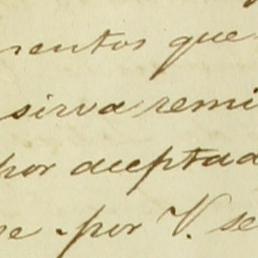 mentos que
sirva remi
por aceptad
re por V. se